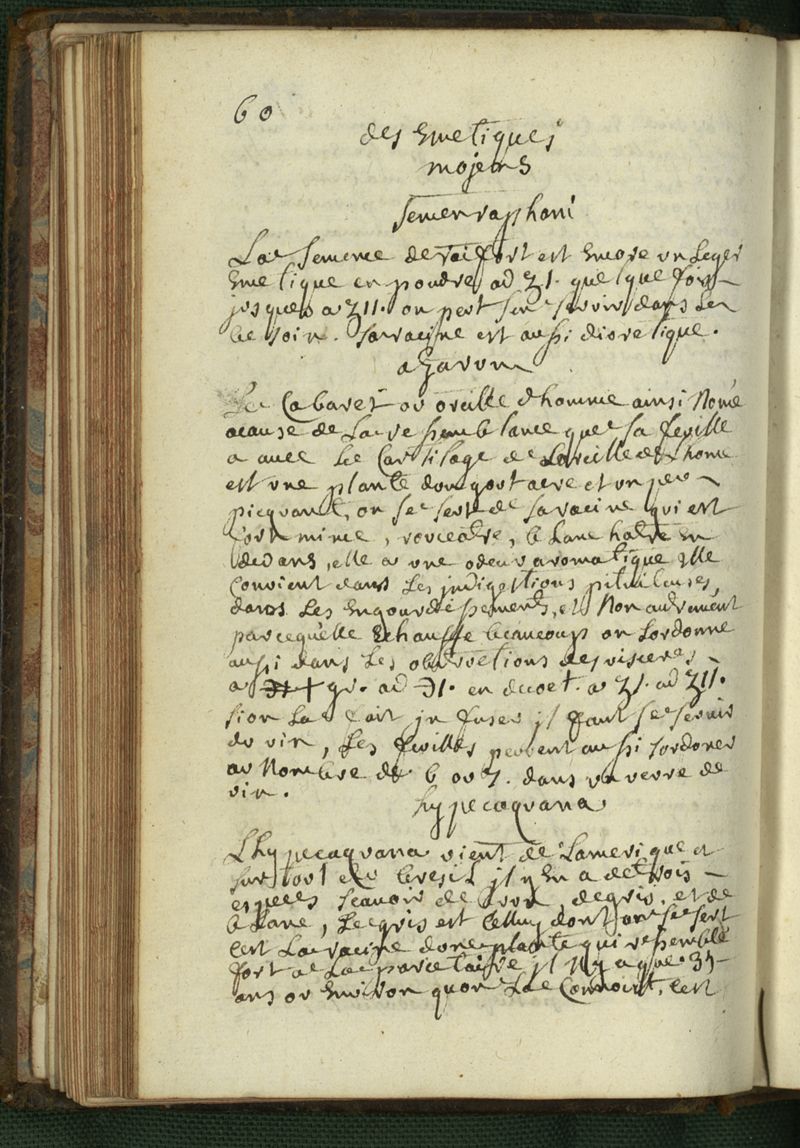 60
des Emetiques
mojens
semen raphani
La semence de raifort est encore un Leger
Emetique en poudre ad ʒ1. quelque fois
jusques a ʒ11. on peut s'en servir dans Le
besoin. sa racine est aussi diuretique.
azarum
Le Cabaret ou oreille d'homme ainsi Nomé
acause de La ressemblance que sa feuille
a avec Le Cartilage de Loreille de Lhome
est une plante dun gout acre et un peu
picquant, on se sert de sa racine qui est
fort mince, rouceatre, blanchatre en
dedans, elle a une odeur aromatique Elle
convient dans Les indigestions pituiteuses,
dans Les Engourdissements, et Non autrement
parcequ'elle Echauffe beaucoup on Lordonne
aussi dans Les obstructions des visceres
a gr. ad ℈1. en decoct. a ʒ1. ad ʒ11.
sion La fait jnfuser jl faut se servir
du vin, Les feuilles peuvent aussi sordoner
au Nombre de 6 ou 7. dans un verre de
vin.
hypecaquana
Lhypecaquana vient de Lamerique et
sur tout du bresil jl y En a de trois
especes scavoir de brun, de gris, et de
blanc, Le gris est celluy dont on se sert
cest La racine dune plante qui ressemble
fort a La parietaire jl Ny a que
ans ou Environ quon La Connoit, cest